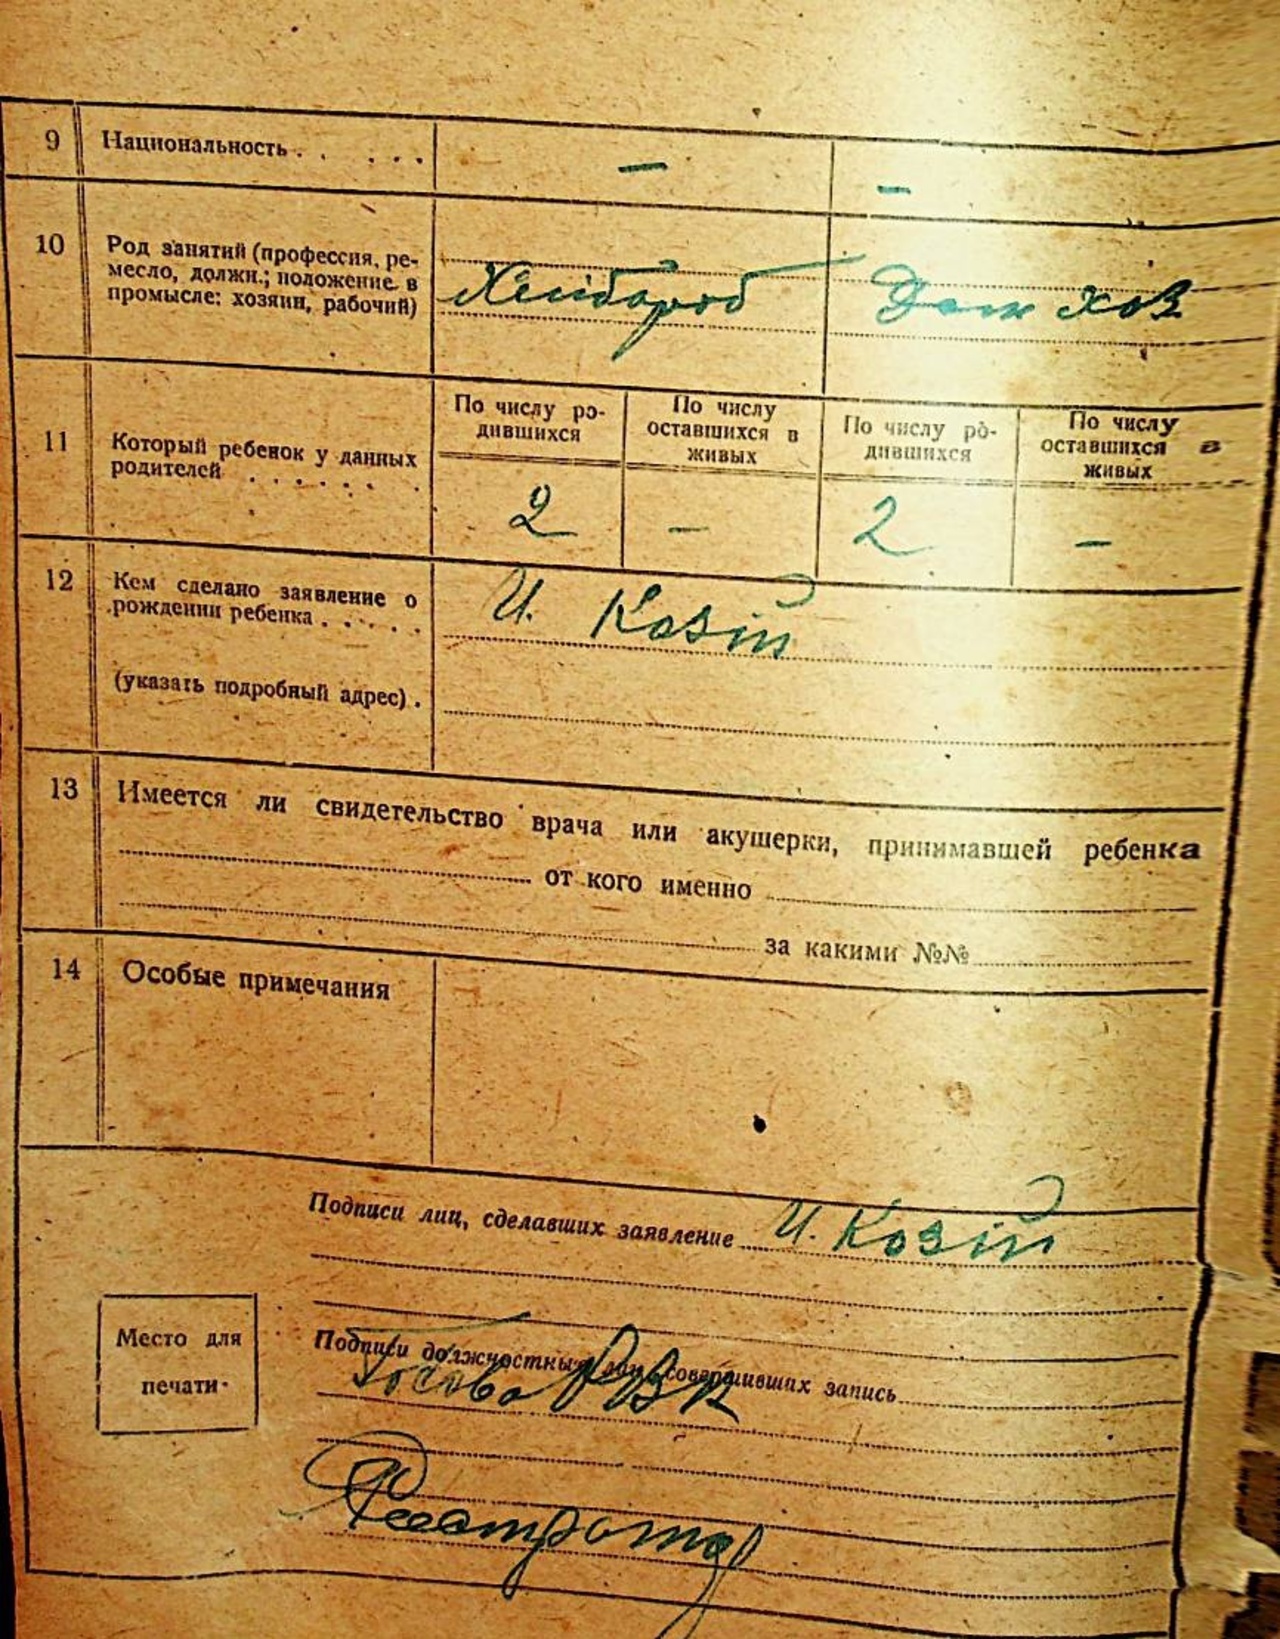 9 Национальность . . . . . — —
10 Род занятий (профессия, ре-
месло, должн.; положение в
промысле: хозяин, рабочий)
Хлібороб Дом хоз
11 Который ребенок у данных
родителей . . . . . . .
По числу ро-
дившихся
По числу
оставшихся в
живых
По числу ро-
дившихся
По числу
оставшихся в
живых
2 — 2 —
12 Кем сделано заявление о
рождении ребенка . . . . .
И. Козій
(указать подробный адрес) .
13 Имеется ли свидетельство врача или акушерки, принимавшей ребенка
от кого именно
за какими №№
14 Особые примечания
Подписи лиц, сделавших заявление И. Козій
Место для
печати
Подписи должностных лиц, совершивших запись
Голова